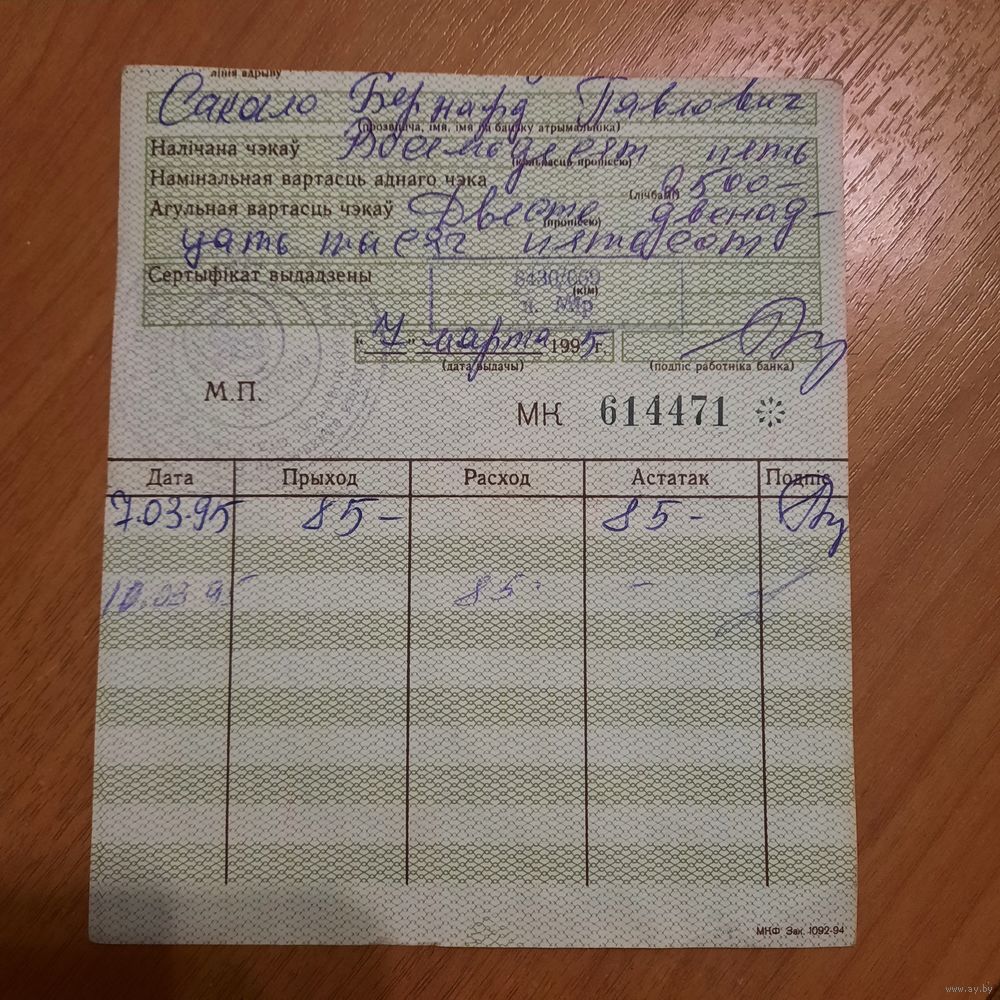 лінія адрыву
Сакало Бернард Павлович
(прозвішча, імя, імя па бацьку атрымальніка)
Налічана чэкаў Восемдесят пять
(колькасць пропіссю)
Намінальная вартасць аднаго чэка 2500-
(лічбамі)
Агульная вартасць чэкаў Двести двенад-
(пропіссю)
цать тысяч пятьсот
Сертыфікат выдадзены 6430/069
(кім)
п. Мір
"7" марта 1995 г.
(дата выдачы) (подпіс работніка банка)
М.П.
МК 614471
Дата Прыход Расход Астатак Подпіс
7.03.95 85- 85-
10.03.95 85- -
МКФ Зак. 1092-94
www.ay.by